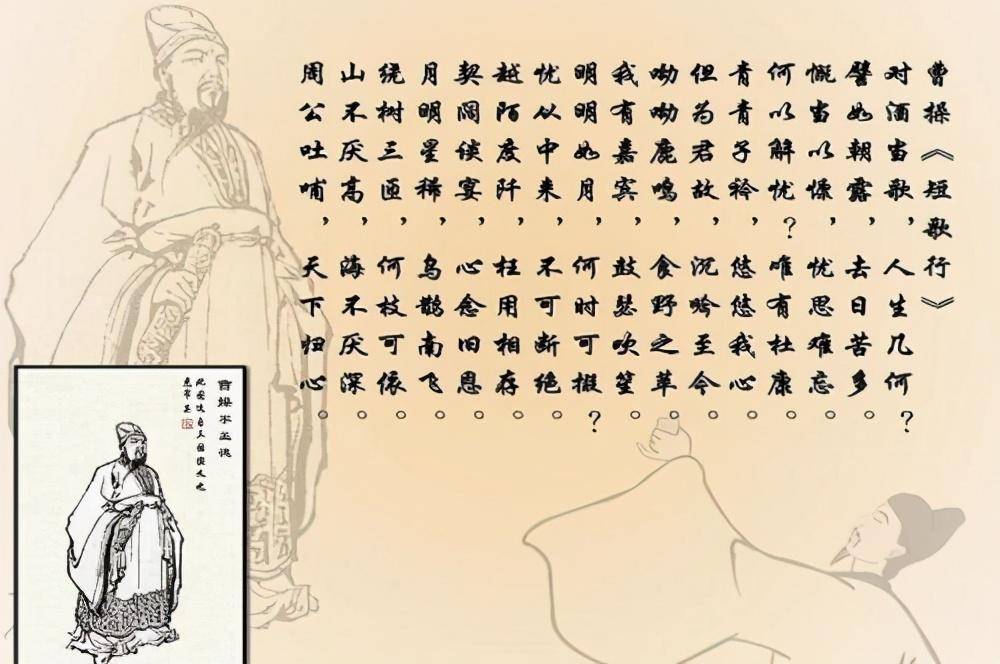 曹操《短歌行》
对酒当歌，人生几何？
譬如朝露，去日苦多。
慨当以慷，忧思难忘。
何以解忧？唯有杜康。
青青子衿，悠悠我心。
但为君故，沉吟至今。
呦呦鹿鸣，食野之苹。
我有嘉宾，鼓瑟吹笙。
明明如月，何时可掇？
忧从中来，不可断绝。
越陌度阡，枉用相存。
契阔谈宴，心念旧恩。
月明星稀，乌鹊南飞。
绕树三匝，何枝可依。
山不厌高，海不厌深。
周公吐哺，天下归心。
曹操字孟德